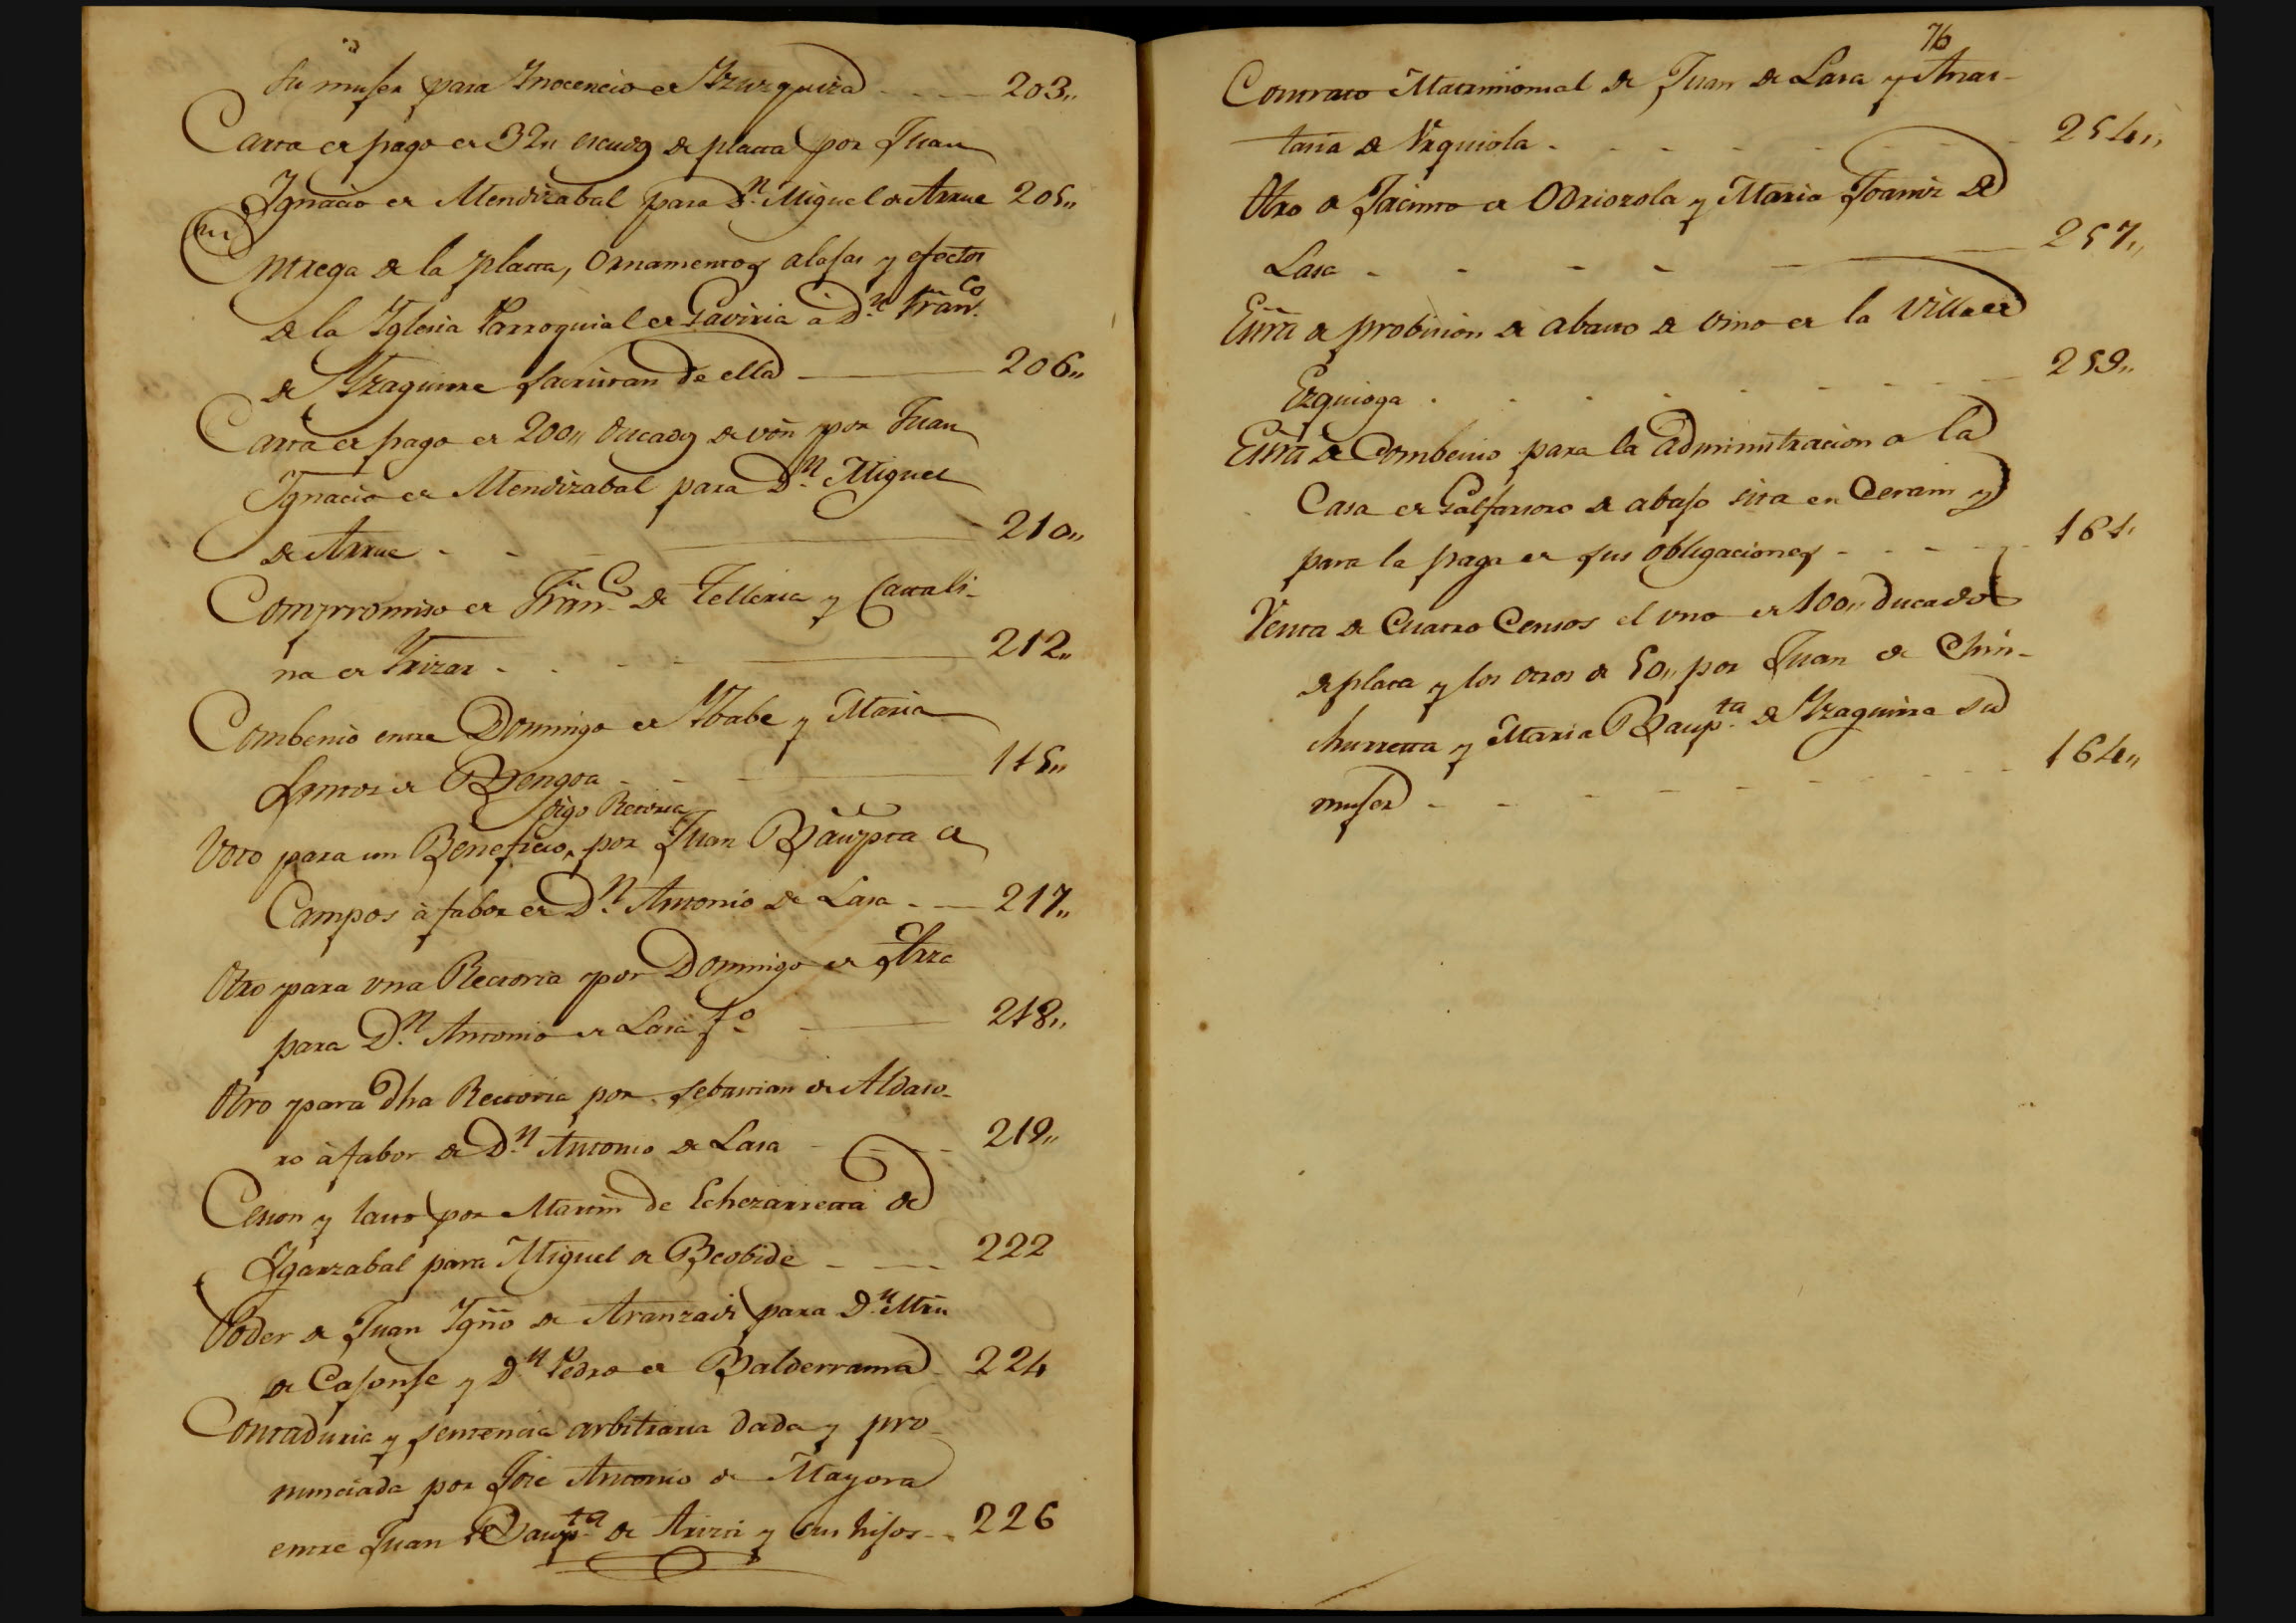 su muger para Ynocencio de Yzurquiza - - - 203,,
Carta de pago de 32,, escudos de platta por Juan
Ignacio de Mendizabal para Dn. Miguel de Arrue 205,,
Entrega de la platta, Ornamentos alajas y efectos
de la Yglesia Parroquial de Gaviria à Dn. Franco.
de Yzaguirre sacristan de ella - 206,,
Carta de pago de 200,, ducados de von por Juan
Ignacio de Mendizabal para Dn. Miguel
de Arrue - - - 210,,
Compromiso de Franco. de Telleria y Catali-
na de Yrizar - - - 212,,
Combenio entre Domingo de Ybabe y Maria
Santos de Bengoa - - - 115,,
digo Retoria
Voto para un Beneficio, por Juan Baupta de
Campos à fabor de Dn. Antonio de Lasa - - 217,,
Otro para una Rectoria por Domingo de
para Dn. Antonio de Lasa fo - 218,,
Otro para dha Rectoria por Sebastian de Aldaso-
ro à fabor de Dn. Antonio de Lasa - - - 219,,
Cesion y lasto por Martin de Echezarretta de
Ygarzabal para Miguel de Beobide - - 222
Poder de Juan Ygno de Aranzadi para Dn. Mrn
de Cajonje y Dn. Pedro de Balderrama - 224
Contaduria y sentencia arbitraria dada y pro-
nunciada por José Antonio de Mayora
entre Juan Baupta. de Arizti y sus hijos - - 226
76
Contrato Matrimonial de Juan de Lasa y Anas-
tasia de Urquiola - - - 254,,
Otro de Jacinto de Odriozola y Maria Joaniz de
Lasa - - - 257,,
Essra de probision de abasto de vino de la Villa de
Ezquioga - - - 259,,
Essra de Combenio para la administracion de la
Casa de Galfarsoro de abajo sita en Cerain y
para la paga de sus obligaciones - - - 161,
Venta de Cuatro Censos el uno de 100,, ducados
de plata y los otros de 50,, por Juan de Chin-
churretta y Maria Baupta. de Yzaguirre su
muger - - - 164,,